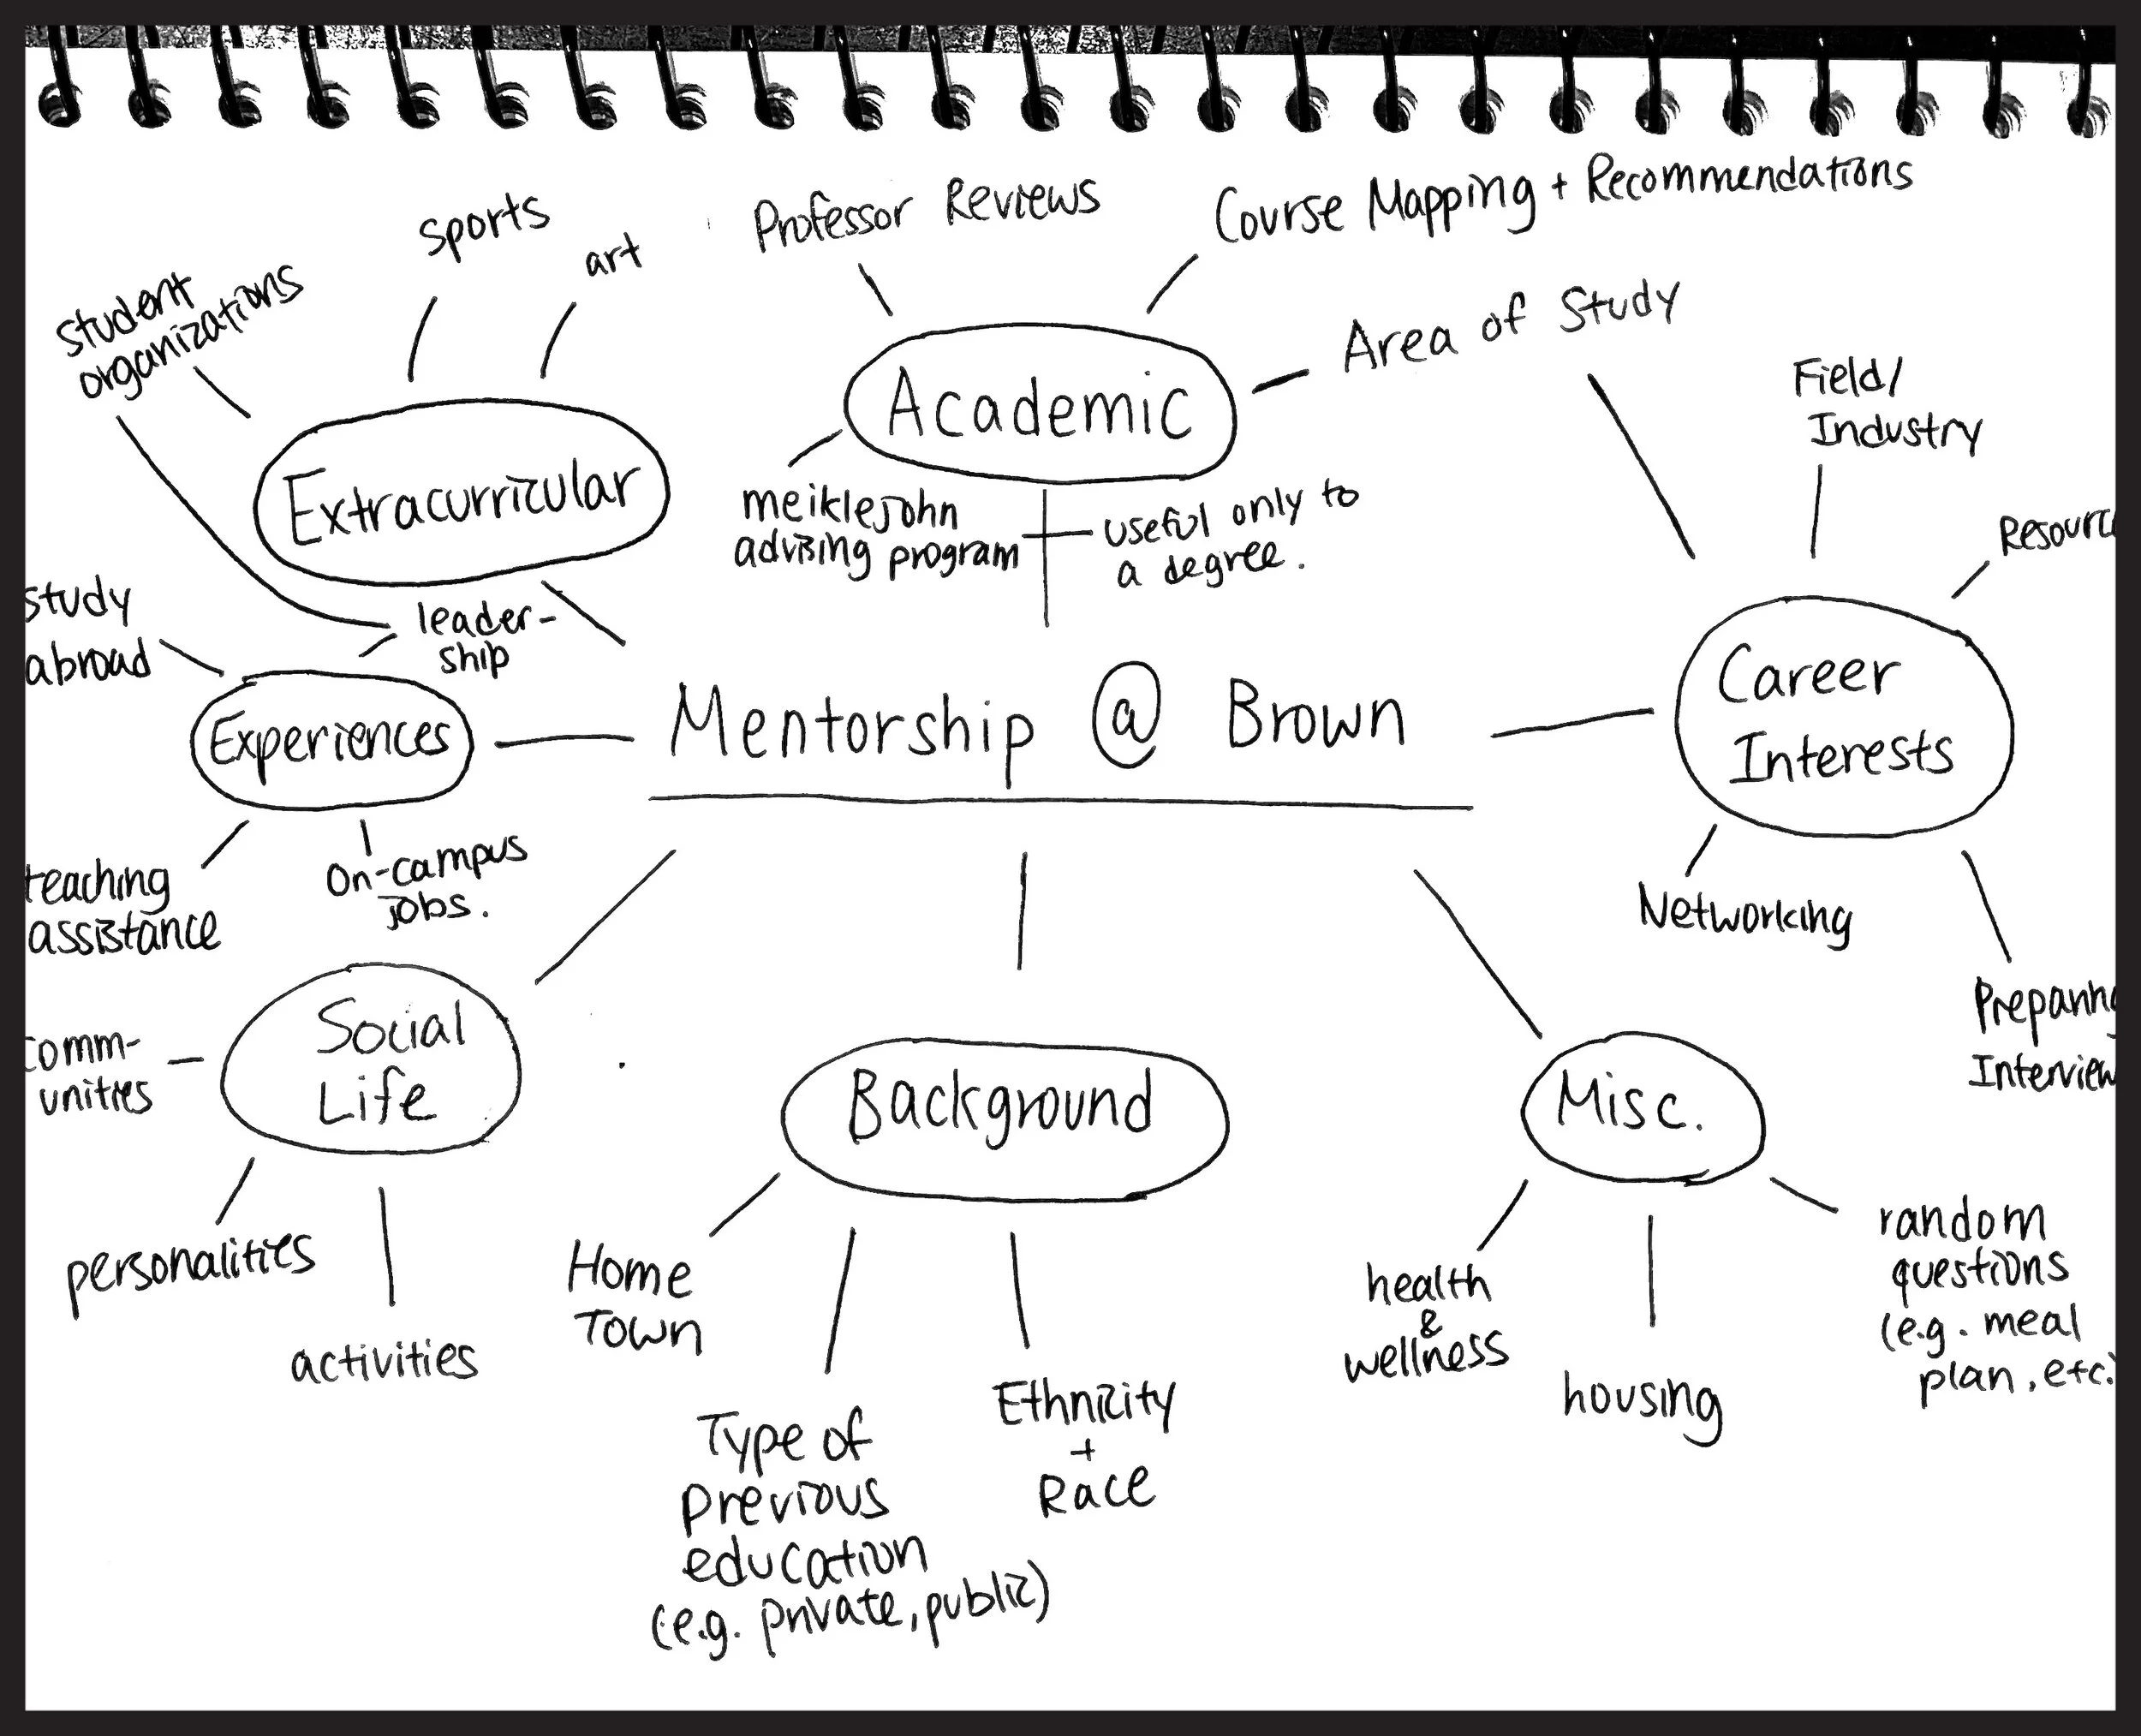 sports
art
student
organizations
Extracurricular
Professor Reviews
Course Mapping + Recommendations
Academic
Area of Study
meiklejohn
advising program
useful only to
a degree.
Field/
Industry
Career
Interests
Networking
study
abroad
leader-
ship
Experiences
teaching
assistance
on-campus
jobs.
Mentorship @ Brown
Social
Life
unities
personalities
activities
Background
Home
Town
Type of
Previous
education
(e.g. private, public)
Ethnicity
+
Race
Misc.
health
&
wellness
housing
random
questions
(e.g. meal
plan, etc.)